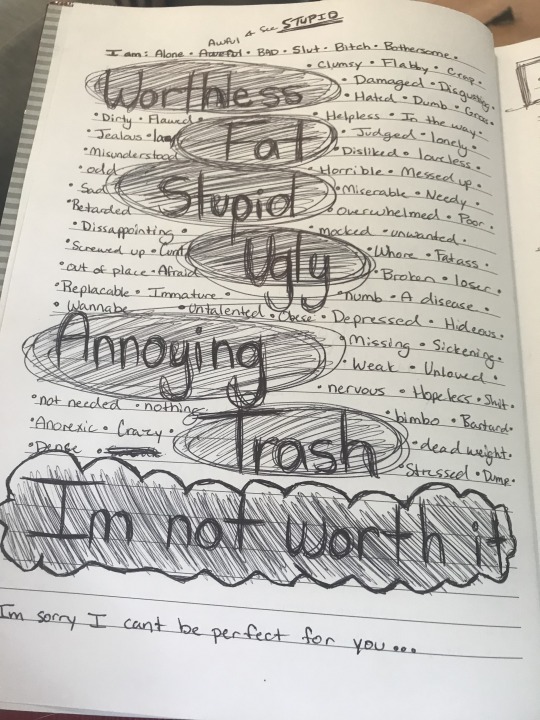 Awful & See STUPID
I am: Alone • Awful • BAD • Slut • Bitch • Bothersome.
• Clumsy • Flabby • Creep.
Worthless • Damaged • Disgusting.
• Hated • Dumb • Gross
• Dirty • Flawed • Helpless • In the way.
• Jealous • lazy Fat • Judged • lonely.
• Misunderstood • Disliked • loveless.
• odd • Horrible • Messed up.
• Sad Stupid • Miserable • Needy.
• Retarded • Overwhelmed • Poor.
• Dissappointing • • mocked • unwanted.
• Screwed up • Cunt Ugly • Whore • Fatass.
• out of place • Afraid • Broken • loser.
• Replacable • Immature • • numb • A disease.
• Wannabe • Untalented • Obese • Depressed • Hideous.
Annoying • Missing • Sickening.
• Weak • Unloved.
• nervous • Hopeless • Shit.
• not needed • nothing • bimbo • Bastard.
• Anorexic • Crazy • Trash • dead weight.
• Dense • Stressed • Dump.
Im not worth it
Im sorry I cant be perfect for you...